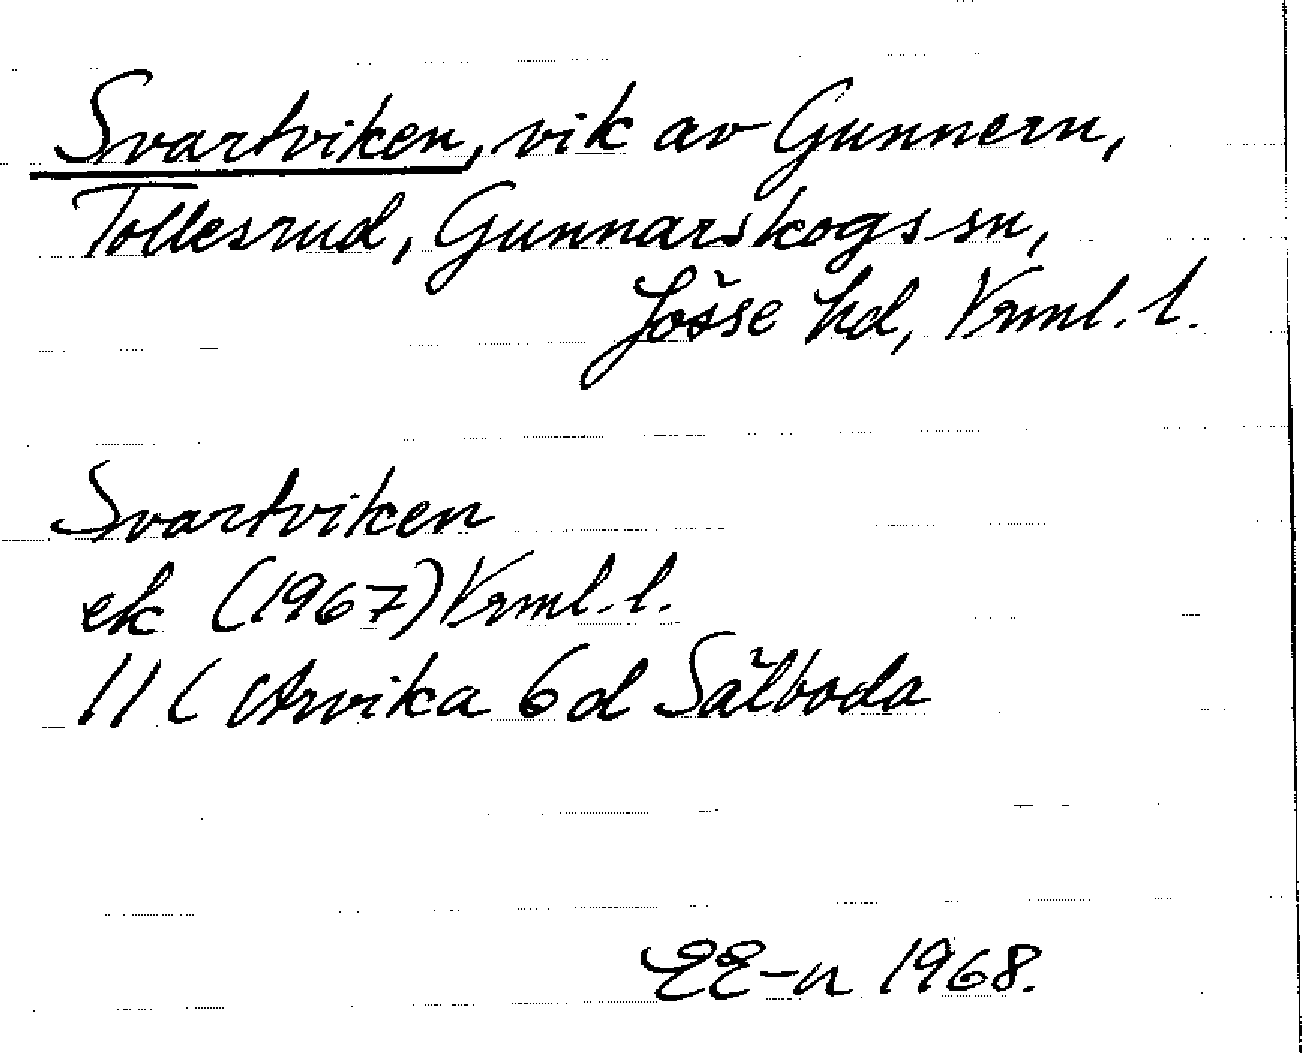 Svartviken, vik av Gunnern,
Tollesrud, Gunnarskogs sn,
Jösse hd, Vrml. l.
Svartviken
ek (1967) Vrml. l.
11C Arvika 6d Sälboda
EE-n 1968.